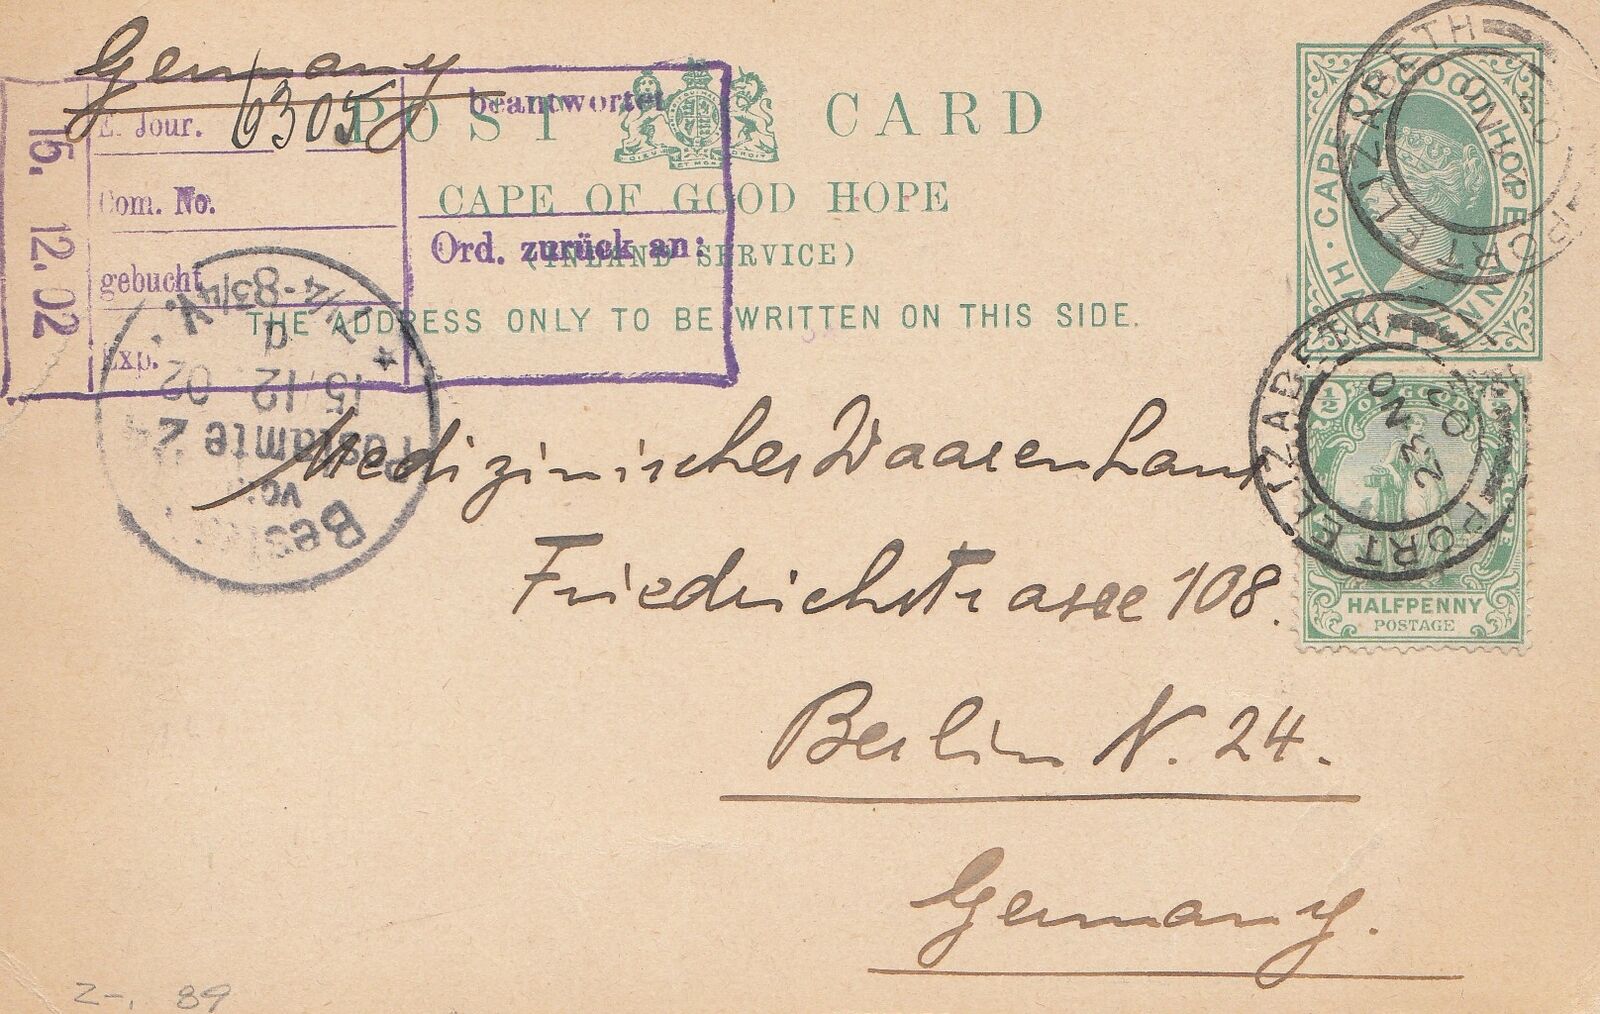 Germany
POST CARD
CAPE OF GOOD HOPE
(INLAND SERVICE)
THE ADDRESS ONLY TO BE WRITTEN ON THIS SIDE.
15. 12. 02
E. Jour. 6305
Com. No.
gebucht
Exp.
beantwortet
Ord. zurück an:
Medizinisches Waarenhaus
Friedrichstrasse 108.
Berlin N. 24.
Germany.
PORT ELIZABETH
PORT ELIZABETH
23 NO
02
HALFPENNY
POSTAGE
Bestellt
vom
Postamte 24
15.12.02
7 1/4-8 3/4 V.
Z-. 89